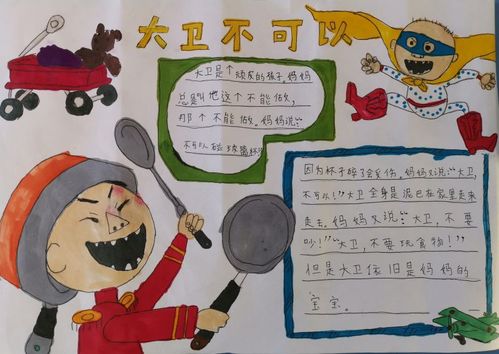 大卫不可以
大卫是个顽皮的孩子。妈妈
总是叫他这个不能做，
那个不能做。妈妈说：“
不可以碰玻璃杯
因为杯子碎了会受伤。妈妈又说：“大卫，
不可以！”大卫全身是泥巴在家里走来
走去。妈妈又说：“大卫，不要
吵！”“大卫，不要玩食物！”
但是大卫依旧是妈妈的
宝宝。